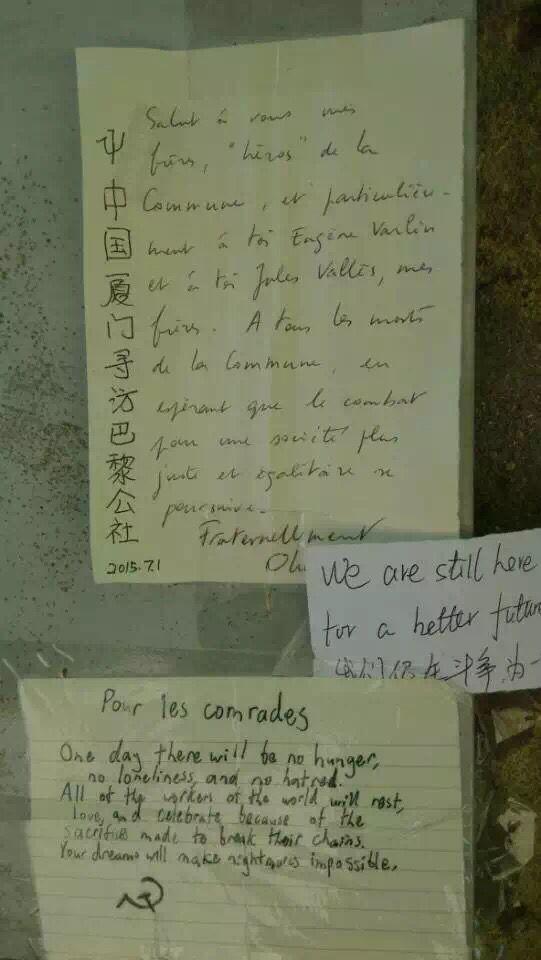 Salut à vous mes
frères, "héros" de la
Commune, et particulière-
ment à toi Eugène Varlin
et à toi Jules Vallès, mes
frères. A tous les morts
de la Commune, en
espérant que le combat
pour une société plus
juste et égalitaire se
poursuive.
Fraternellement
中国厦门寻访巴黎公社
2015.7.1
We are still here
for a better future
我们仍在斗争,为一
Pour les comrades
One day there will be no hunger,
no loneliness, and no hatred.
All of the workers of the world will rest,
love, and celebrate because of the
sacrifices made to break their chains.
Your dreams will make nightmares impossible.